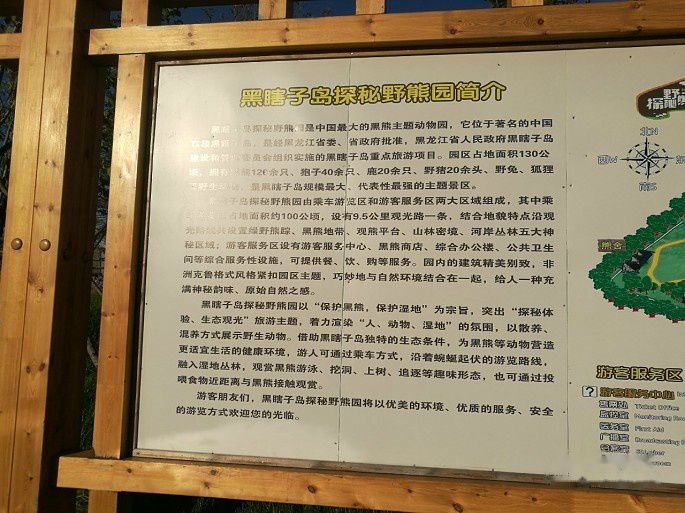 黑瞎子岛探秘野熊园简介
岛探秘野熊园是中国最大的黑熊主题动物园，它位于著名的中国
岛，是经黑龙江省委、省政府批准，黑龙江省人民政府黑瞎子岛
建设和管理委员会组织实施的黑瞎子岛重点旅游项目。园区占地面积130公
顷，拥有黑熊126余只、狍子40余只、鹿20余只、野猪20余头、野兔、狐狸
野生动物，是黑瞎子岛规模最大、代表性最强的主题景区。
黑瞎子岛探秘野熊园由乘车游览区和游客服务区两大区域组成，其中乘
占地面积约100公顷，设有9.5公里观光路一条，结合地貌特点沿观
光路线共设置绿野熊踪、黑熊地带、观熊平台、山林密境、河岸丛林五大神
秘区域；游客服务区设有游客服务中心、黑熊商店、综合办公楼、公共卫生
间等综合服务性设施，可提供餐、饮、购等服务。园内的建筑精美别致，非
洲克鲁格式风格紧扣园区主题，巧妙地与自然环境结合在一起，给人一种充
满神秘韵味、原始自然之感。
黑瞎子岛探秘野熊园以“保护黑熊，保护湿地”为宗旨，突出“探秘体
验、生态观光”旅游主题，着力渲染“人、动物、湿地”的氛围，以散养、
混养方式展示野生动物。借助黑瞎子岛独特的生态条件，为黑熊等动物营造
更适宜生活的健康环境，游人可通过乘车方式，沿着蜿蜒起伏的游览路线，
融入湿地丛林，观赏黑熊游泳、挖洞、上树、追逐等趣味形态，也可通过投
喂食物近距离与黑熊接触观赏。
游客朋友们，黑瞎子岛探秘野熊园将以优美的环境、优质的服务、安全
的游览方式欢迎您的光临。
野
探秘
北N
西W
南S
熊舍
游客服务区
? 游客服务中心 In
售票处 Ticket Office
监控室 Monitoring R
医务室 First Aid
广播室 Broadcasting R